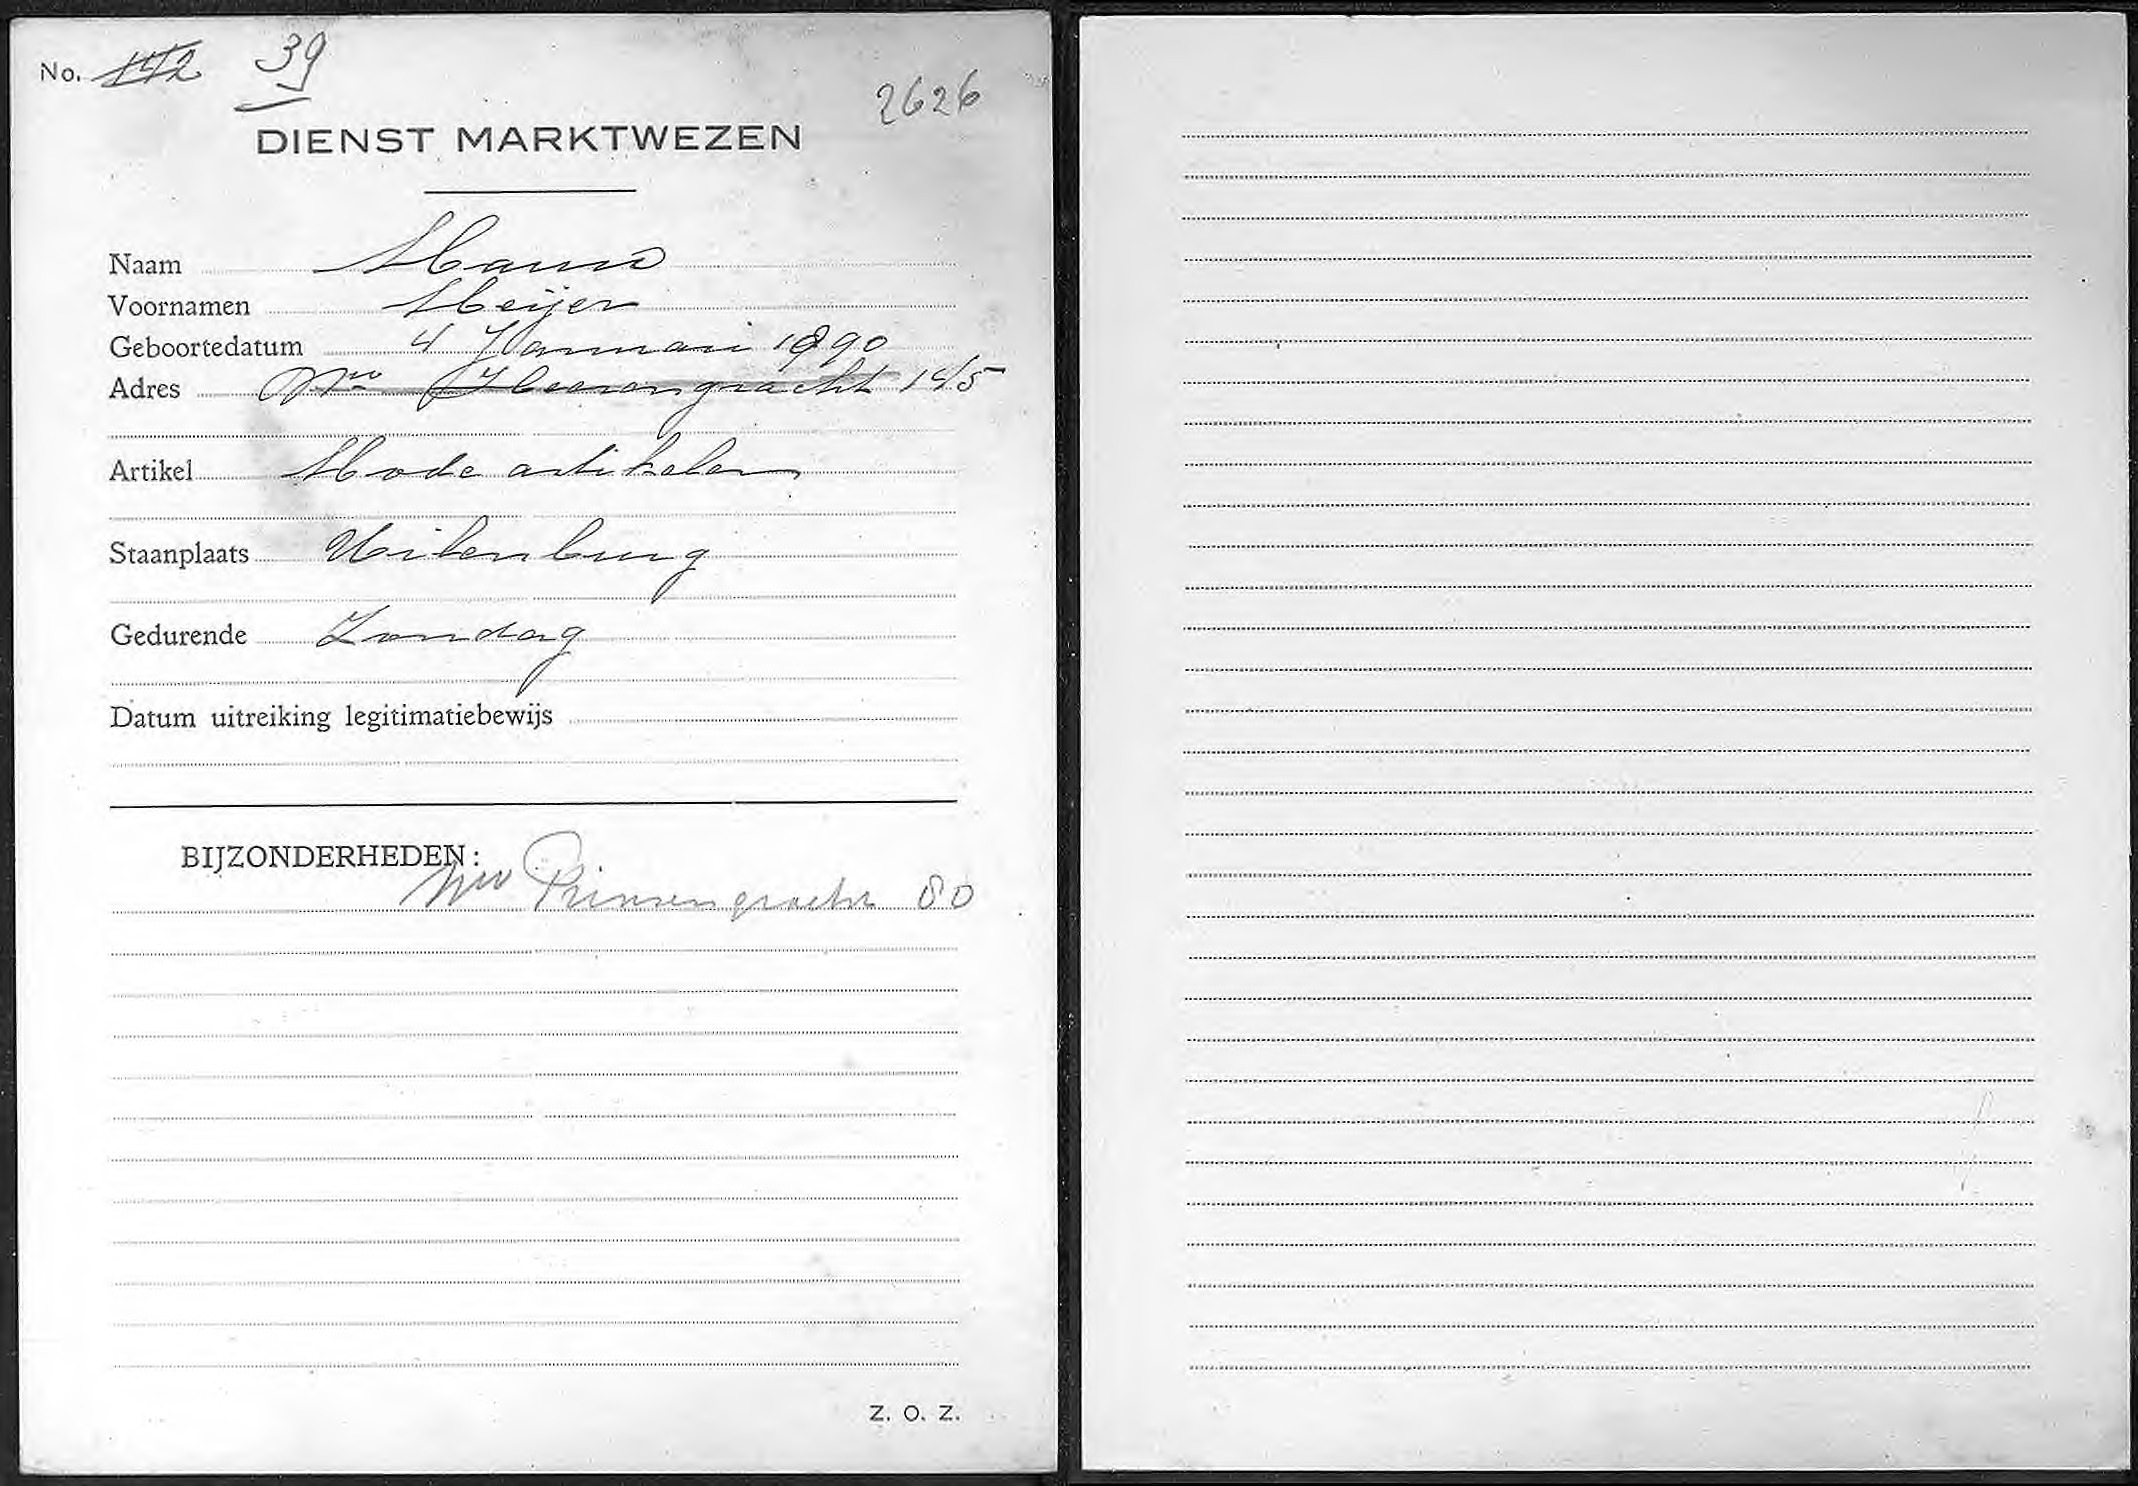 No. 142 39
2626
DIENST MARKTWEZEN
Naam
Voornamen Meijer
Geboortedatum 4 Januari 1890
Adres Nw Heerengracht 145
Artikel Mode artikelen
Staanplaats Uilenburg
Gedurende Zondag
Datum uitreiking legitimatiebewijs
BIJZONDERHEDEN:
Nw Prinsengracht 80
Z. O. Z.